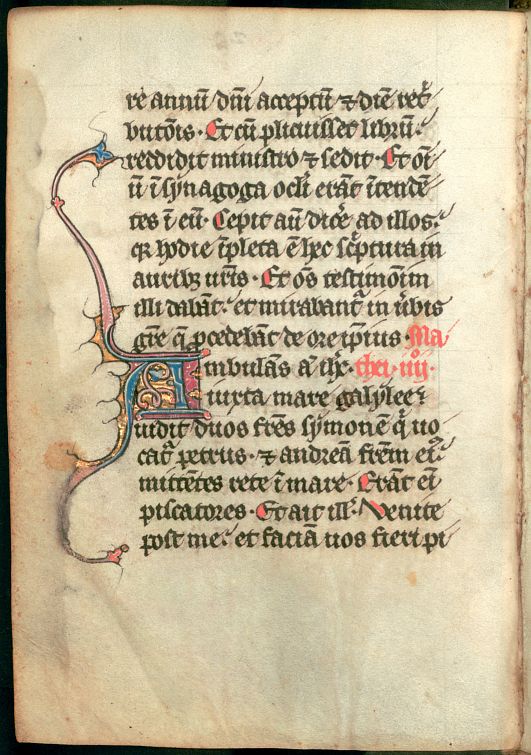 re annū dn̄i acceptū ⁊ diē ret͛
butōis · Et cū plicuisset librū ·
reddidit ministro ⁊ sedit · Et oı̄
ū ī synagoga ocl̓i erāt ītendē
tes ī eū · Cepit aū dic̄e ad illos ·
qꝛ hodie īpleta ē hec sc̓ptura in
auribꝫ ur̄is · Et oēs testimoīm
illi dabāt · et mirabant̓ in u̓bis
gr̄e q̄ ꝓcedebāt de ore ip̄ius · Ma
Ambulās a͛ ih̄c · thei · iiij ·
iuxta mare galylee ·
uidit duos fr̄es symonē q̓ uo
cat̓ petrus · ⁊ andreā fr̄em ei᷒ ·
mittētes rete ī mare · Erāt eī
piscatores · Et ait ill̓ · Venite
post me · et faciā uos fieri pi